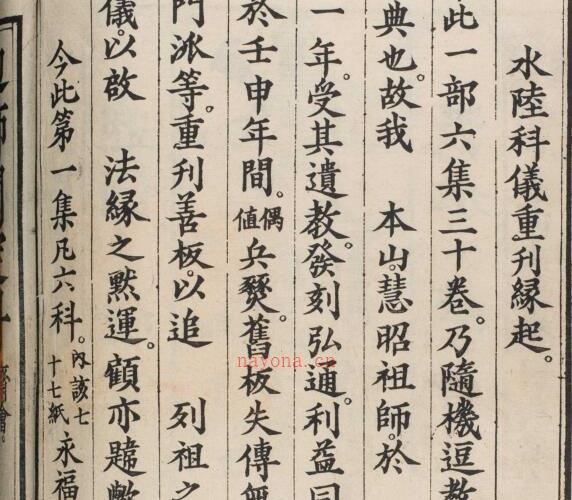 水陸科儀重刊緣起。
此一部六集三十卷。乃隨機逗教
典也。故我 本山慧昭祖師。於
一年。受其遺教。發刻弘通。利益同
於壬申年間。偶值兵燹。舊板失傳無
門派等。重刊善板。以追 列祖之
儀。以啟 法緣之默運。顧亦韙歟
今此第一集凡六科。內該七十七紙永福
nayona.cn